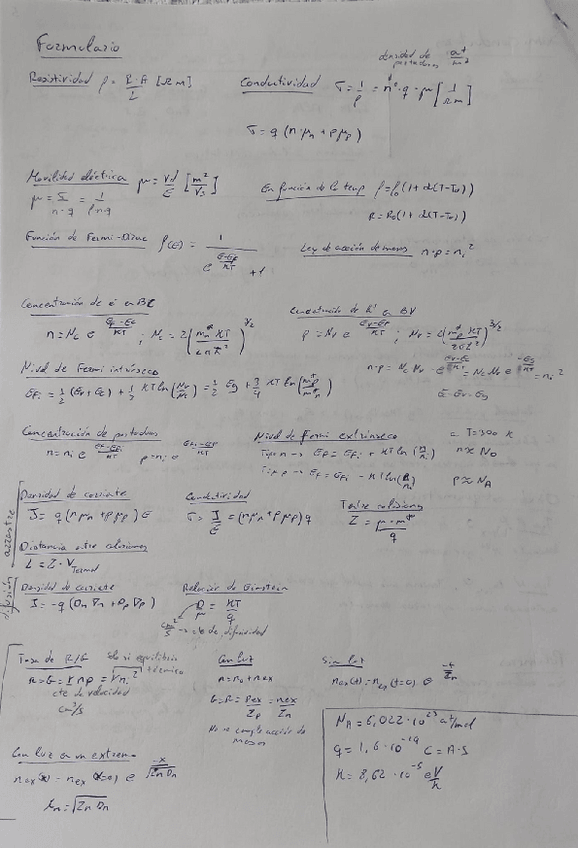 Formulario
densidad de portadores at/m³
Resistividad ρ = R·A/L [Ω m]
Conductividad σ = 1/ρ = n·q·μ [1/Ωm]
σ = q (n μn + p μp)
Movilidad eléctrica μ = Vd/E [m²/Vs]
μ = σ/n·q = 1/ρnq
En función de la temp ρ = ρ0(1+α(T-T0))
R = R0(1+α(T-T0))
Función de Fermi-Dirac f(E) = 1/(e^((E-EF)/KT) + 1)
Ley de acción de masas n·p = ni²
Concentración de e- en BC
n = Nc e^((EF-Ec)/KT) ; Nc = 2(mn* KT/2πħ²)^3/2
Concentración de h+ en BV
p = Nv e^((Ev-EF)/KT) ; Nv = 2(mp* KT/2πħ²)^3/2
n·p = Nc Nv · e^((Ev-Ec)/KT) = Nc Nv e^(-Eg/KT) = ni²
Nivel de Fermi intrínseco
EFi = 1/2 (Ev+Ec) + 1/2 KT ln(Nv/Nc) = 1/2 Eg + 3/4 KT ln(mp*/mn*)
Concentración de portadores
n = ni e^((EF-EFi)/KT) p = ni e^((EFi-EF)/KT)
Nivel de Fermi extrínseco
T=300 K
Tipo n → EF = EFi + KT ln(n/ni) n≈ND
Tipo p → EF = EFi - KT ln(p/ni) p≈NA
arrastre
Densidad de corriente
J = q(n μn + p μp) E
Conductividad
σ = J/E = (n μn + p μp) q
T entre colisiones
Z = μ·m*/q
Distancia entre colisiones
L = Z · VTermal
difusión
Densidad de corriente
J = -q (Dn ∇n + Dp ∇p)
Relación de Einstein
D/μ = KT/q
cm²/s → cte de difusividad
Tasa de R/G Solo si equilibrio térmico
R=G = r np = r ni²
cte de velocidad
cm³/s
Con luz
n = n0 + nex
G=R = pex/Zp = nex/Zn
No se cumple acción de masas
Sin luz
nex(t) = nex(t=0) e^(-t/Zn)
Con luz en un extremo
nex(x) = nex(x=0) e^(-x/√(Zn Dn))
Ln = √(Zn Dn)
NA = 6,022·10^23 at/mol
q = 1,6·10^-19 C = A·s
K = 8,62·10^-5 eV/K